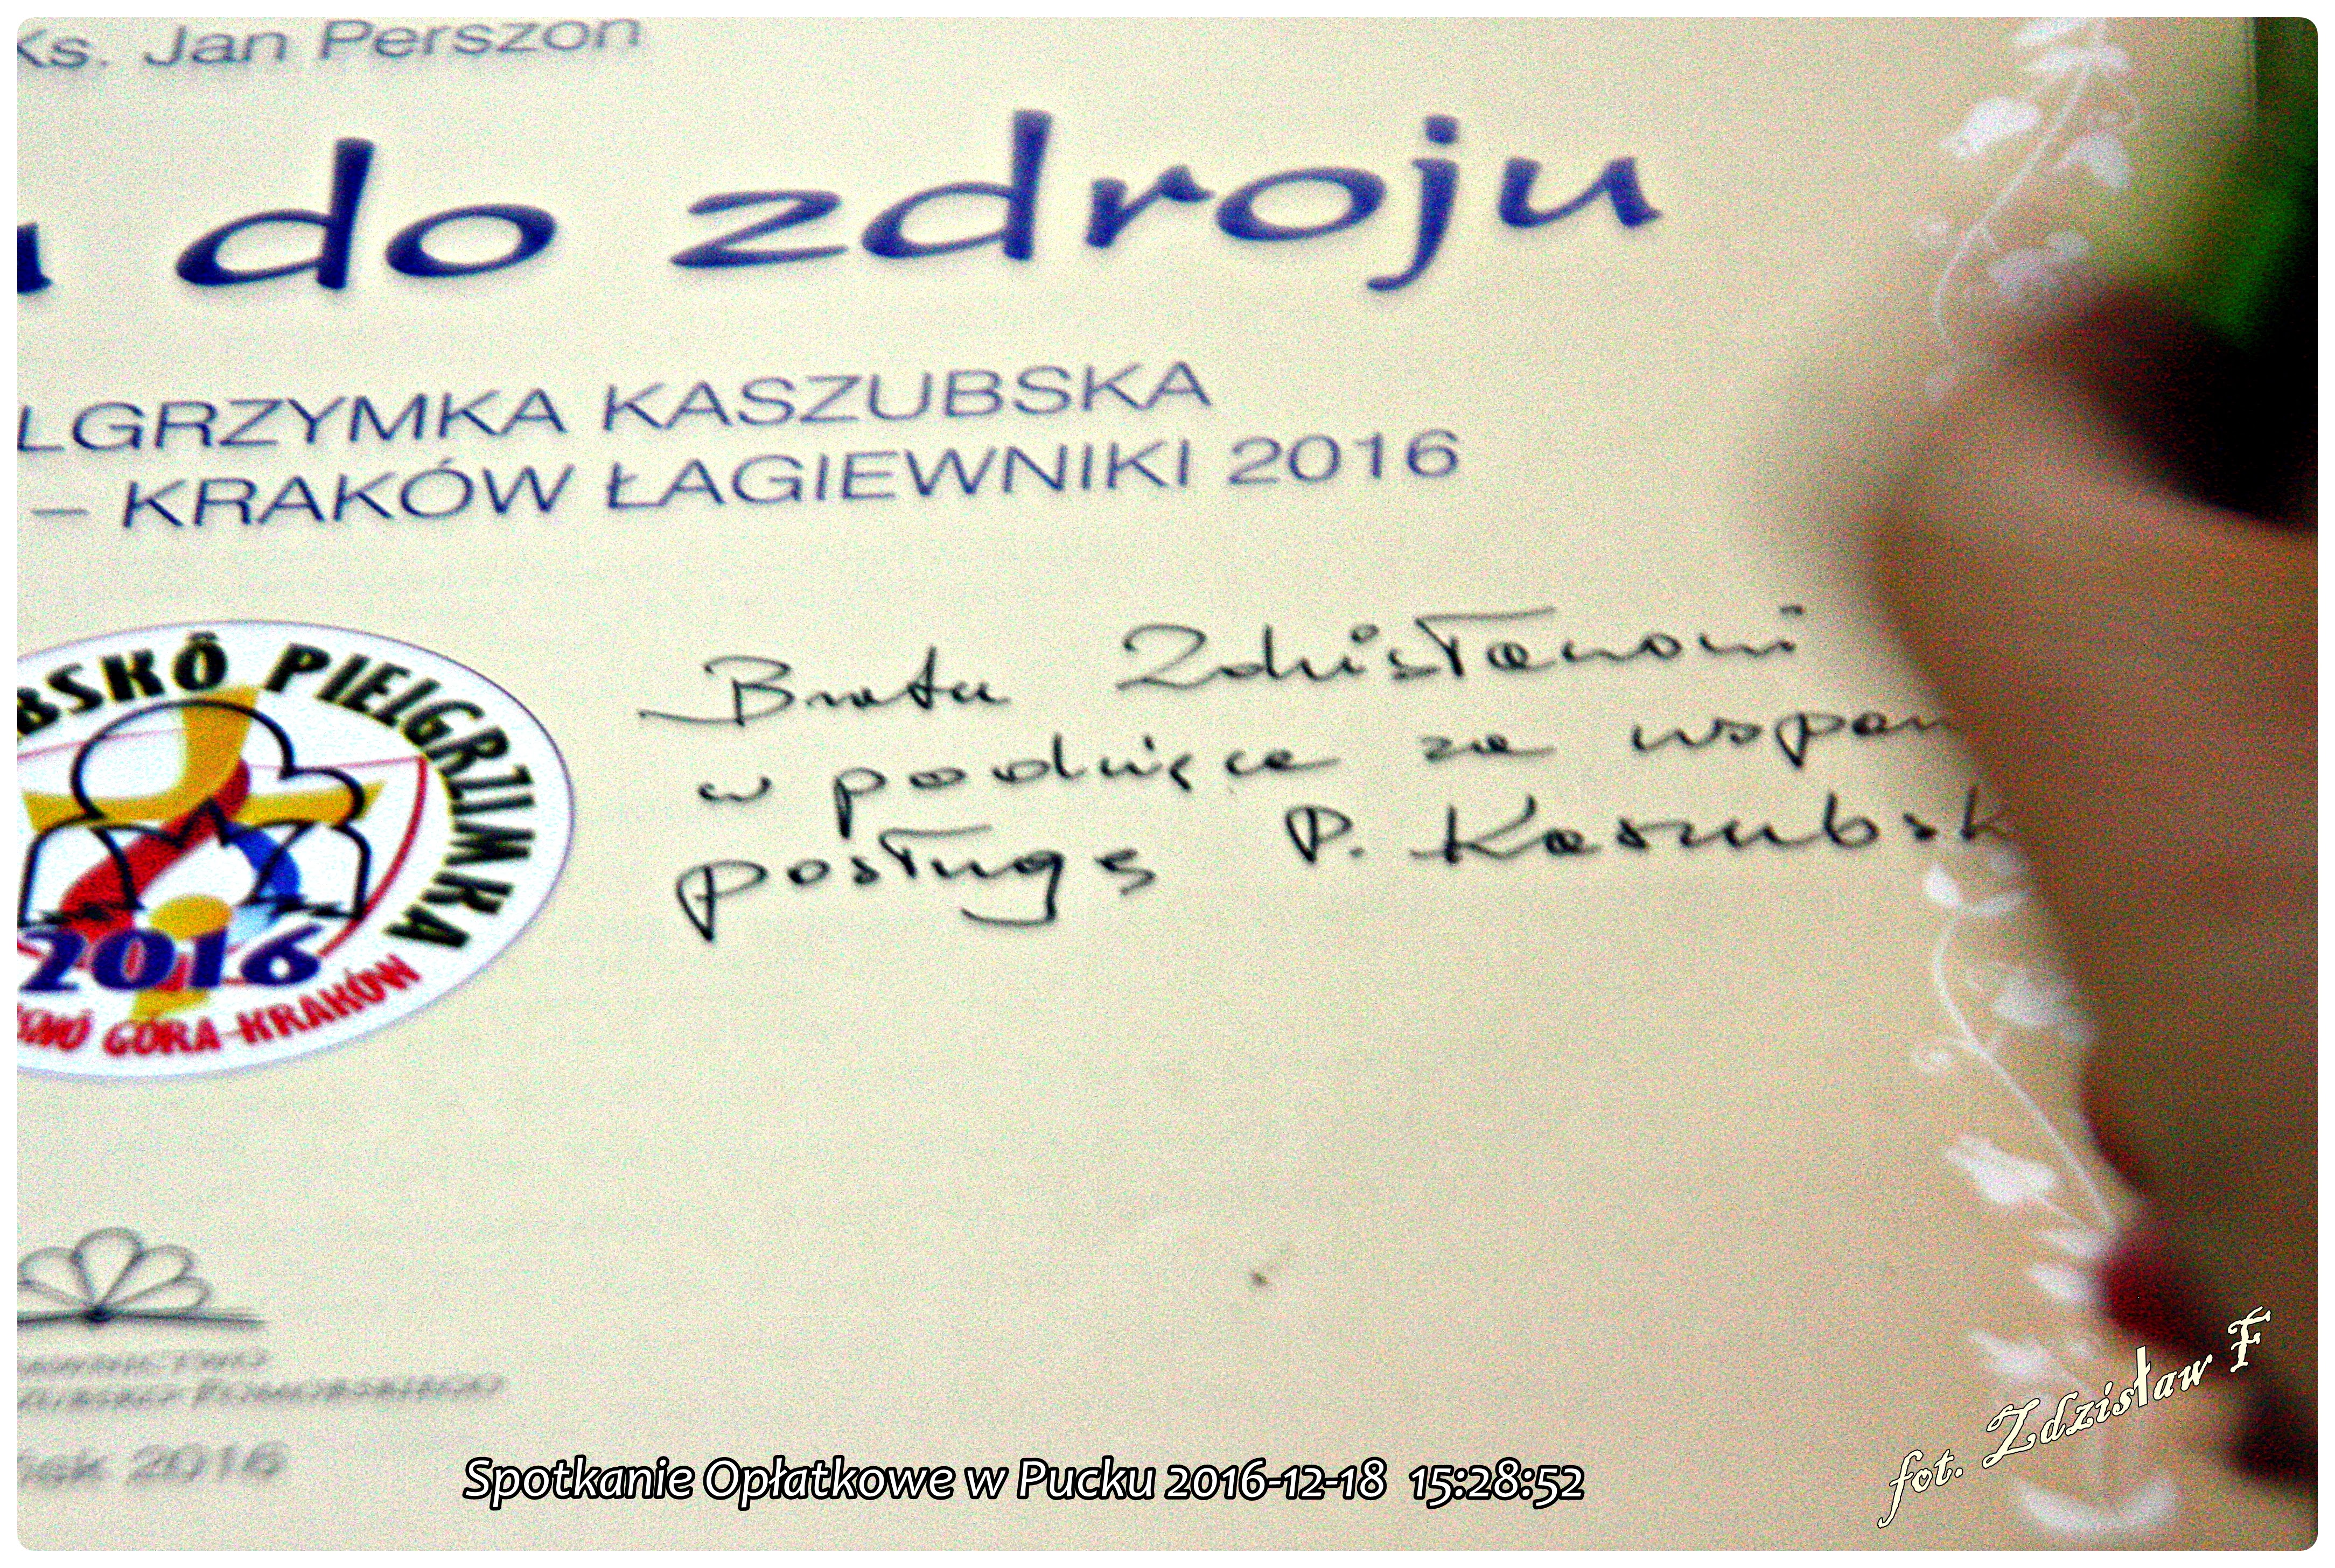 Ks. Jan Perszon
do zdroju
LGRZYMKA KASZUBSKA
– KRAKÓW ŁAGIEWNIKI 2016
BSKÔ PIELGRZIMKA
2016
GÓRA-KRAKÓW
Bratu Zdzisławowi
w podzięce za wspan
posługę P. Kaszubsk
2016
Spotkanie Opłatkowe w Pucku 2016-12-18 15:28:52
fot. Zdzisław F